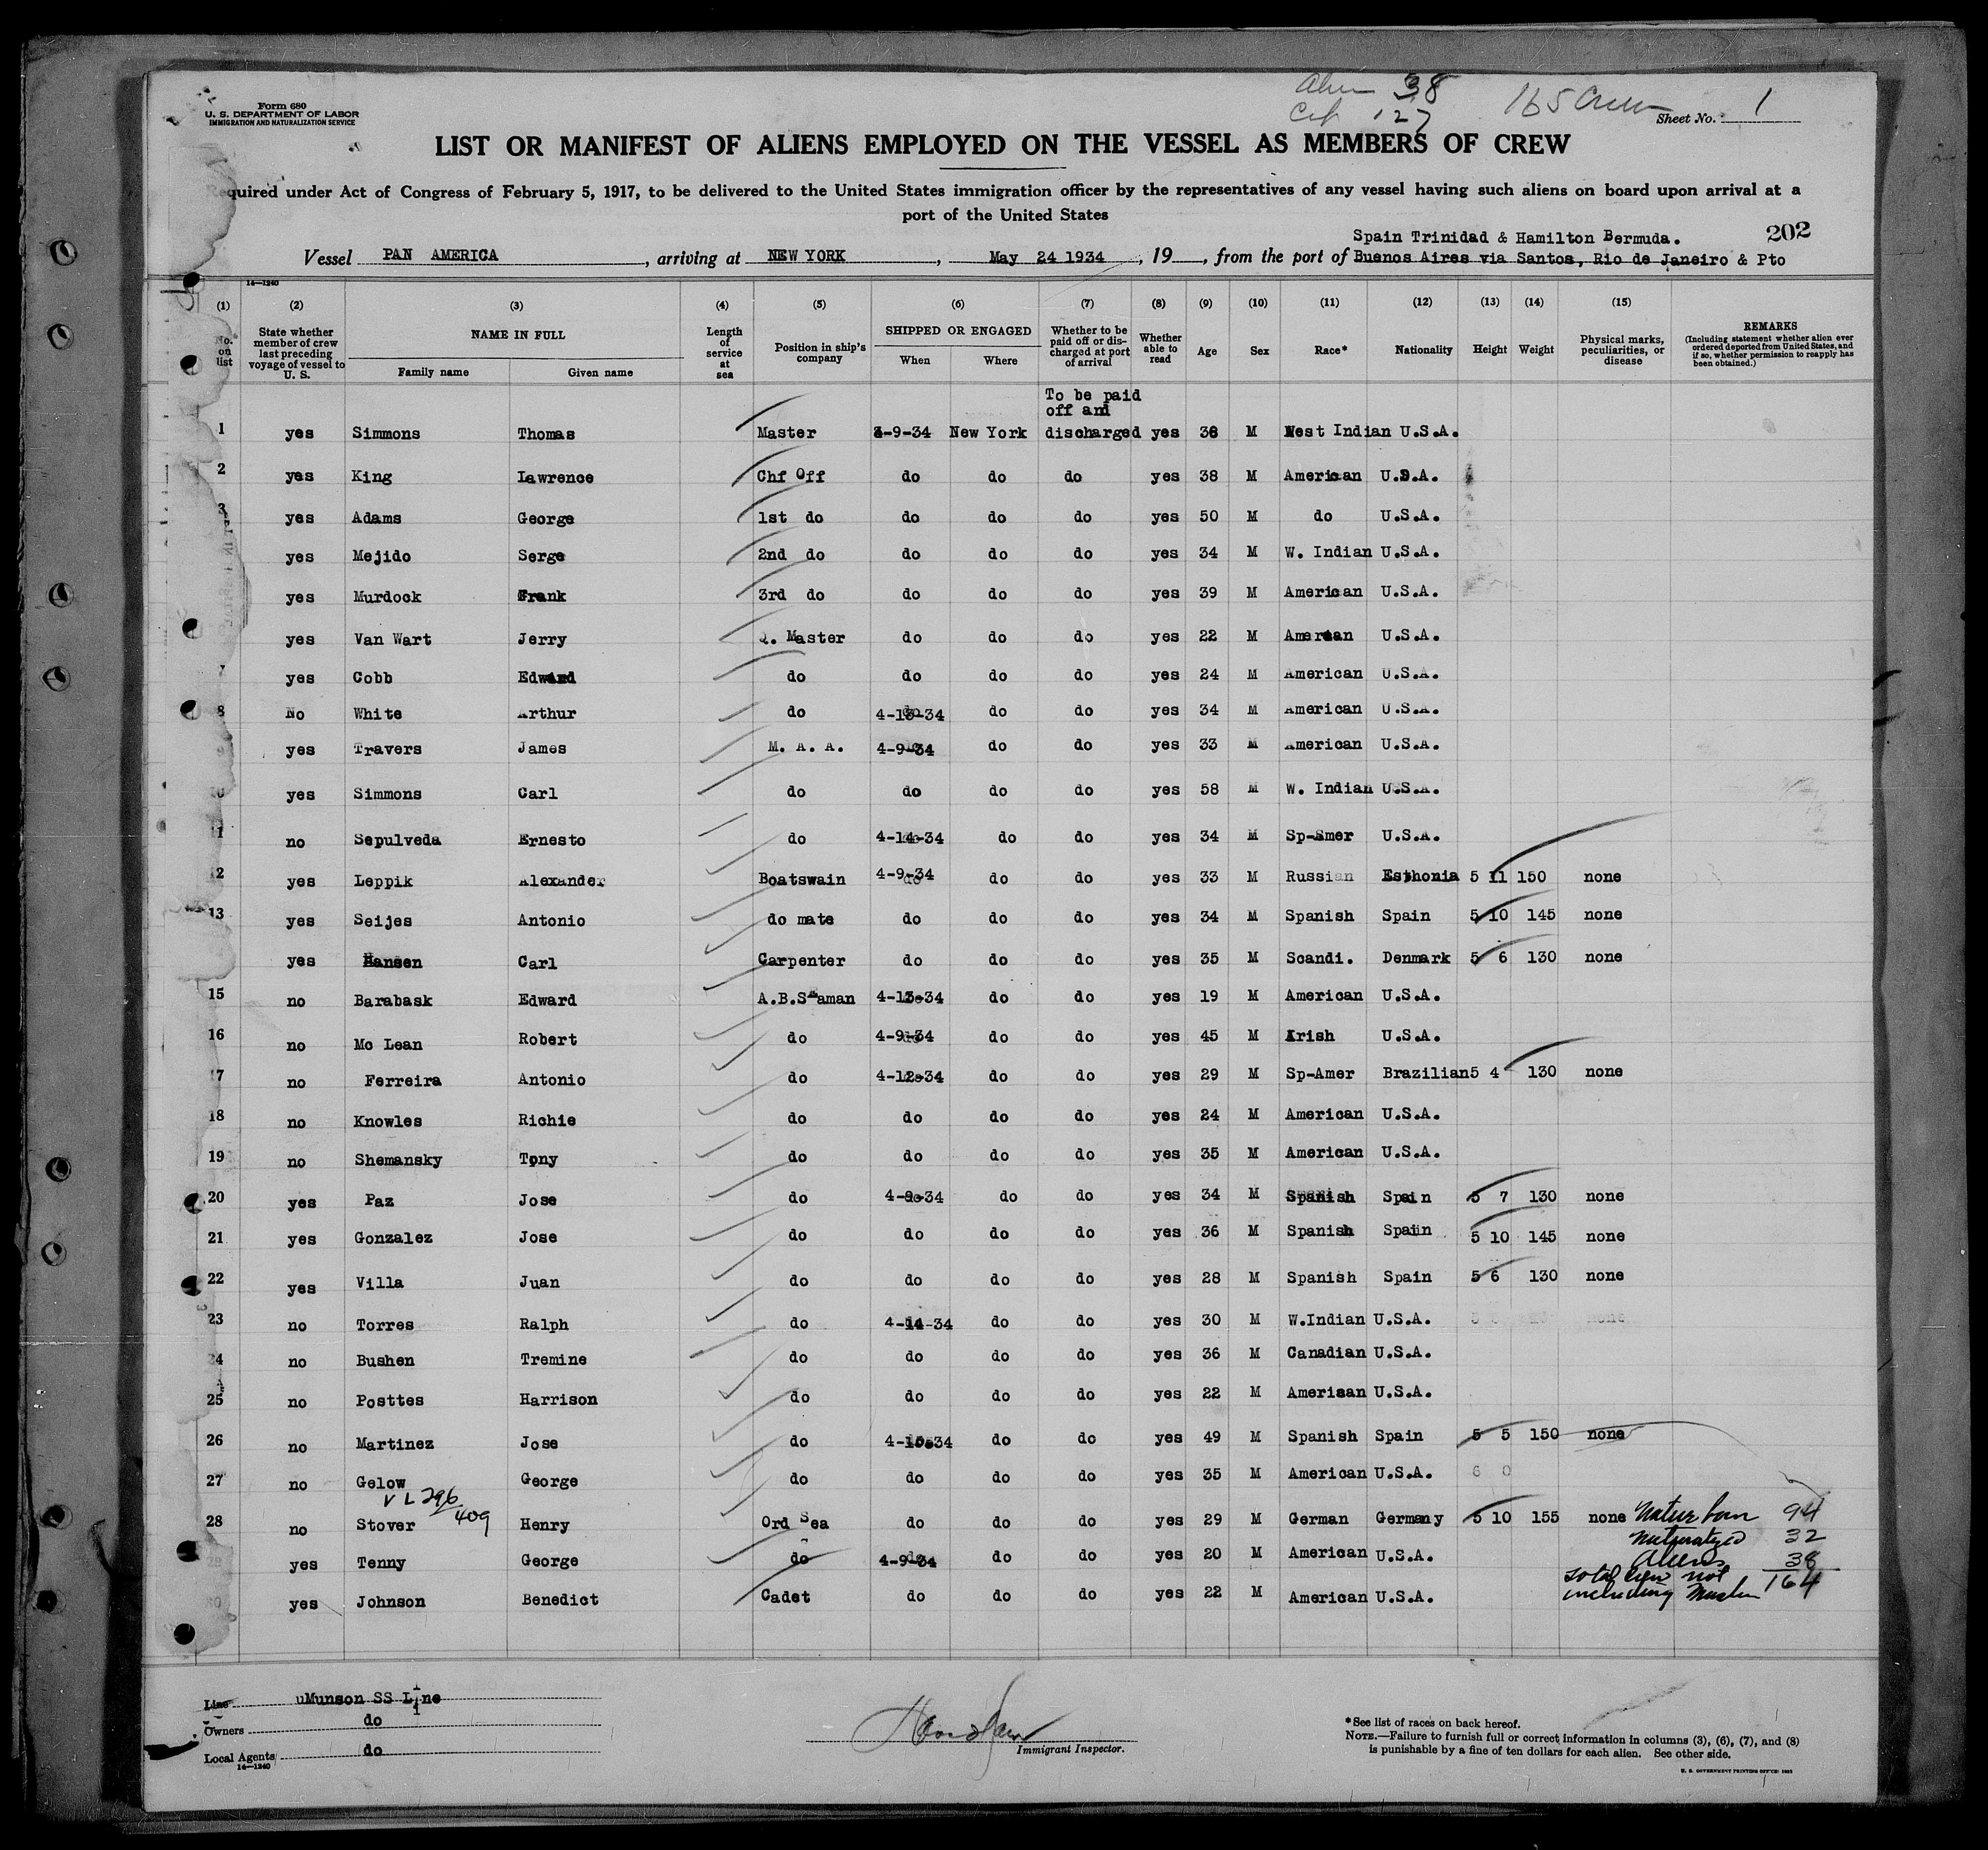 Form 680
U. S. DEPARTMENT OF LABOR
IMMIGRATION AND NATURALIZATION SERVICE
Alien 38
Cit 127
165 Crew
Sheet No. 1
LIST OR MANIFEST OF ALIENS EMPLOYED ON THE VESSEL AS MEMBERS OF CREW
Required under Act of Congress of February 5, 1917, to be delivered to the United States immigration officer by the representatives of any vessel having such aliens on board upon arrival at a
port of the United States
202
Spain Trinidad & Hamilton Bermuda.
Vessel PAN AMERICA, arriving at NEW YORK, May 24 1934, 19, from the port of Buenos Aires via Santos, Rio de Janeiro & Pto
14—1240
(1) (2) (3) (4) (5) (6) (7) (8) (9) (10) (11) (12) (13) (14) (15)
No. on list
State whether member of crew last preceding voyage of vessel to U. S.
NAME IN FULL
Family name Given name
Length of service at sea
Position in ship's company
SHIPPED OR ENGAGED
When Where
Whether to be paid off or discharged at port of arrival
Whether able to read
Age Sex Race* Nationality Height Weight
Physical marks, peculiarities, or disease
REMARKS
(Including statement whether alien ever ordered deported from United States, and if so, whether permission to reapply has been obtained.)
To be paid
off and
1 yes Simmons Thomas Master 4-9-34 New York discharged yes 38 M West Indian U.S.A.
2 yes King Lawrence Chf Off do do do yes 38 M American U.S.A.
3 yes Adams George 1st do do do do yes 50 M do U.S.A.
yes Mejido Serge 2nd do do do do yes 34 M W. Indian U.S.A.
yes Murdock Frank 3rd do do do do yes 39 M American U.S.A.
yes Van Wart Jerry Q. Master do do do yes 22 M Amercan U.S.A.
yes Cobb Edward do do do do yes 24 M American U.S.A.
8 No White Arthur do 4-13-34 do do yes 34 M American U.S.A.
yes Travers James M. A. A. 4-9-34 do do yes 33 M American U.S.A.
yes Simmons Carl do do do do yes 58 M W. Indian U.S.A.
11 no Sepulveda Ernesto do 4-14-34 do do yes 34 M Sp-Amer U.S.A.
12 yes Leppik Alexander Boatswain 4-9-34 do do yes 33 M Russian Esthonia 5 11 150 none
13 yes Seijes Antonio do mate do do do yes 34 M Spanish Spain 5 10 145 none
yes Hansen Carl Carpenter do do do yes 35 M Scandi. Denmark 5 6 130 none
15 no Barabask Edward A.B.Seaman 4-13-34 do do yes 19 M American U.S.A.
16 no Mc Lean Robert do 4-9-34 do do yes 45 M Irish U.S.A.
17 no Ferreira Antonio do 4-12-34 do do yes 29 M Sp-Amer Brazilian 5 4 130 none
18 no Knowles Richie do do do do yes 24 M American U.S.A.
19 no Shemansky Tony do do do do yes 35 M American U.S.A.
20 yes Paz Jose do 4-9-34 do do yes 34 M Spanish Spain 5 7 130 none
21 yes Gonzalez Jose do do do do yes 36 M Spanish Spain 5 10 145 none
22 yes Villa Juan do do do do yes 28 M Spanish Spain 5 6 130 none
23 no Torres Ralph do 4-14-34 do do yes 30 M W.Indian U.S.A.
24 no Bushen Tremine do do do do yes 36 M Canadian U.S.A.
25 no Posttes Harrison do do do do yes 22 M Amerisan U.S.A.
26 no Martinez Jose do 4-15-34 do do yes 49 M Spanish Spain 5 5 150 none
27 no Gelow George do do do do yes 35 M American U.S.A. 6 0
V L 296/409
28 no Stover Henry Ord Sea do do do yes 29 M German Germany 5 10 155 none
29 yes Tenny George do 4-9-34 do do yes 20 M American U.S.A.
30 yes Johnson Benedict Cadet do do do yes 22 M American U.S.A.
Native born 94
Naturalized 32
Aliens 38
Total crew not
including Master 164
Line uMunson SS Line
Owners do
Local Agents do
14—1240
Immigrant Inspector.
*See list of races on back hereof.
NOTE.—Failure to furnish full or correct information in columns (3), (6), (7), and (8)
is punishable by a fine of ten dollars for each alien. See other side.
U. S. GOVERNMENT PRINTING OFFICE: 1932